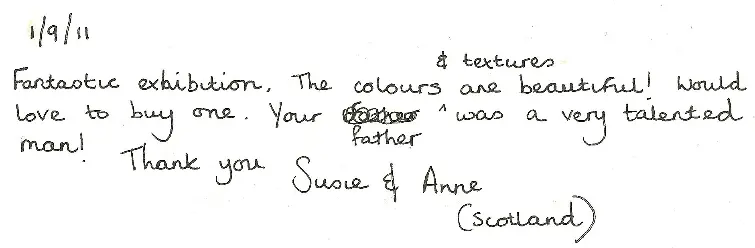 1/9/11
& textures
Fantastic exhibition. The colours are beautiful! Would
love to buy one. Your ^ was a very talented
father
man!
Thank you
Susie & Anne
(Scotland)